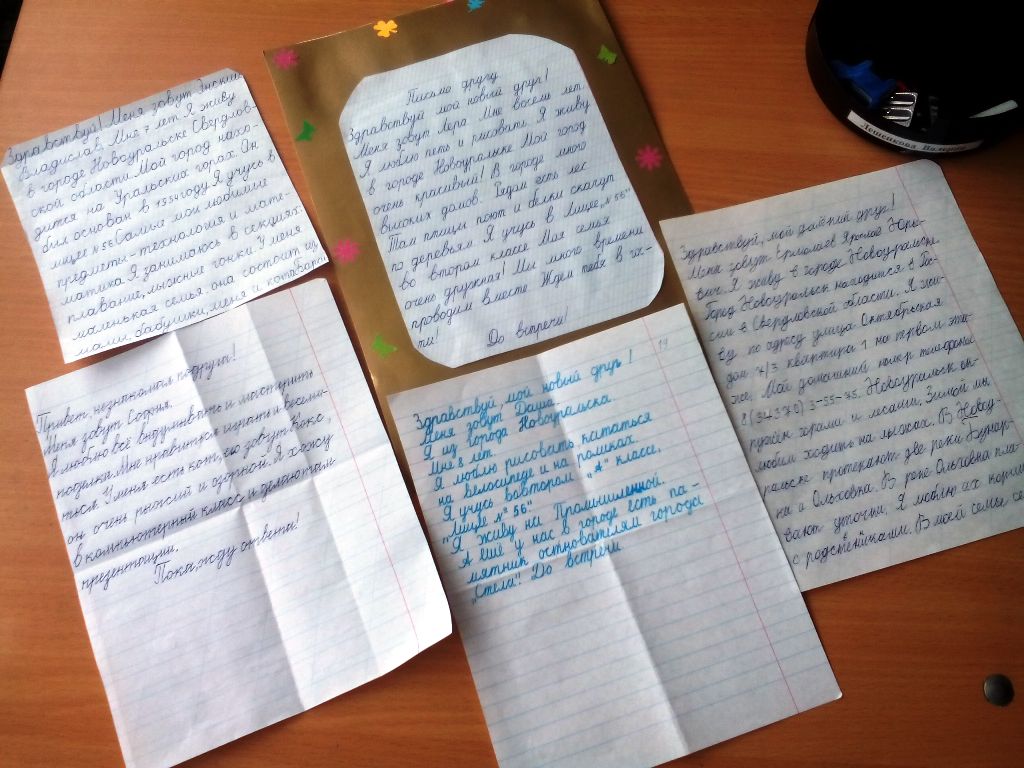 Здравствуй! Меня зовут Энский
Владислав. Мне 7 лет. Я живу
в городе Новоуральске Свердлов-
ской области. Мой город нахо-
дится на Уральских горах. Он
был основан в 1954 году. Я учусь в
лицее №56. Самые мои любимые
предметы-технология и мате-
матика. Я занимаюсь в секциях:
плавание, лыжные гонки. У меня
маленькая семья. она состоит из
мамы, бабушки, меня и
Письмо другу
Здравствуй мой новый друг!
Меня зовут Лера. Мне восемь лет.
Я люблю петь и рисовать. Я живу
в городе Новоуральке. Мой город
очень красивый! В городе много
высоких домов. Рядом есть лес.
Там птицы поют и белки скачут
по деревьям. Я учусь в Лицее „№56"
во втором классе. Моя семья
очень дружная! Мы много времени
проводим вместе. Ждём тебя в гос-
ти!
До встречи!
Здравствуй, мой далёкий друг!
Меня зовут Ермолаев Ярослав Юрь-
евич. Я живу в городе Новоуральске
Город Новоуральск находится в Рос-
сии в Свердловской области. Я жи-
ву по адресу улица Октябрьская
дом 7/3 квартира 1 на первом эта-
же. Мой домашний номер телефона
8(34370) 3-55-75. Новоуральск ок-
ружён горами и лесами. Зимой мы
любим ходить на лыжах. В Новоу-
ральске протекают две реки Бунар-
ка и Ольховка. В реке Ольховка пла-
вают уточки. Я люблю их кормить
с родственниками. В моей семье
Привет, незнакомая подруга!
Меня зовут Софья.
Я люблю всё выдумывать и мастерить
поделки. Мне нравится играть и весели-
ться. У меня есть кот, его зовут Кокс,
он очень рыжий и озорной. Я хожу
в компьютерный класс и делаю там
презентации.
Пока, жду ответа!
14
Здравствуй мой новый друг!
Меня зовут Даша.
Я из города Новоуральска.
Мне 8 лет.
Я люблю рисовать кататься
на велосипеде и на роликах.
Я учусь вовтором „А" классе,
„Лицее №56"
Я живу на Промышленной.
А ещё у нас в городе есть па-
мятник основателям города
„Стела"! До встречи
Лешенкова Валерия